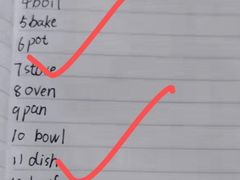 4 boil
5 bake
6 pot
7 stove
8 oven
9 pan
10 bowl
11 dish